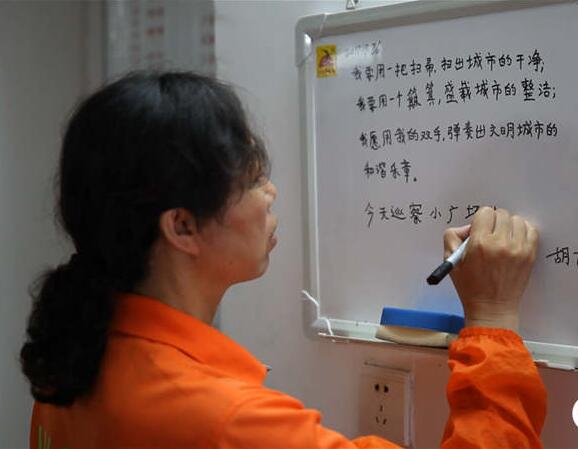 我要用一把扫帚,扫出城市的干净;
我要用一个簸箕,盛载城市的整洁;
我愿用我的双手,弹奏出文明城市的
和谐乐章。
今天巡察小广场
胡